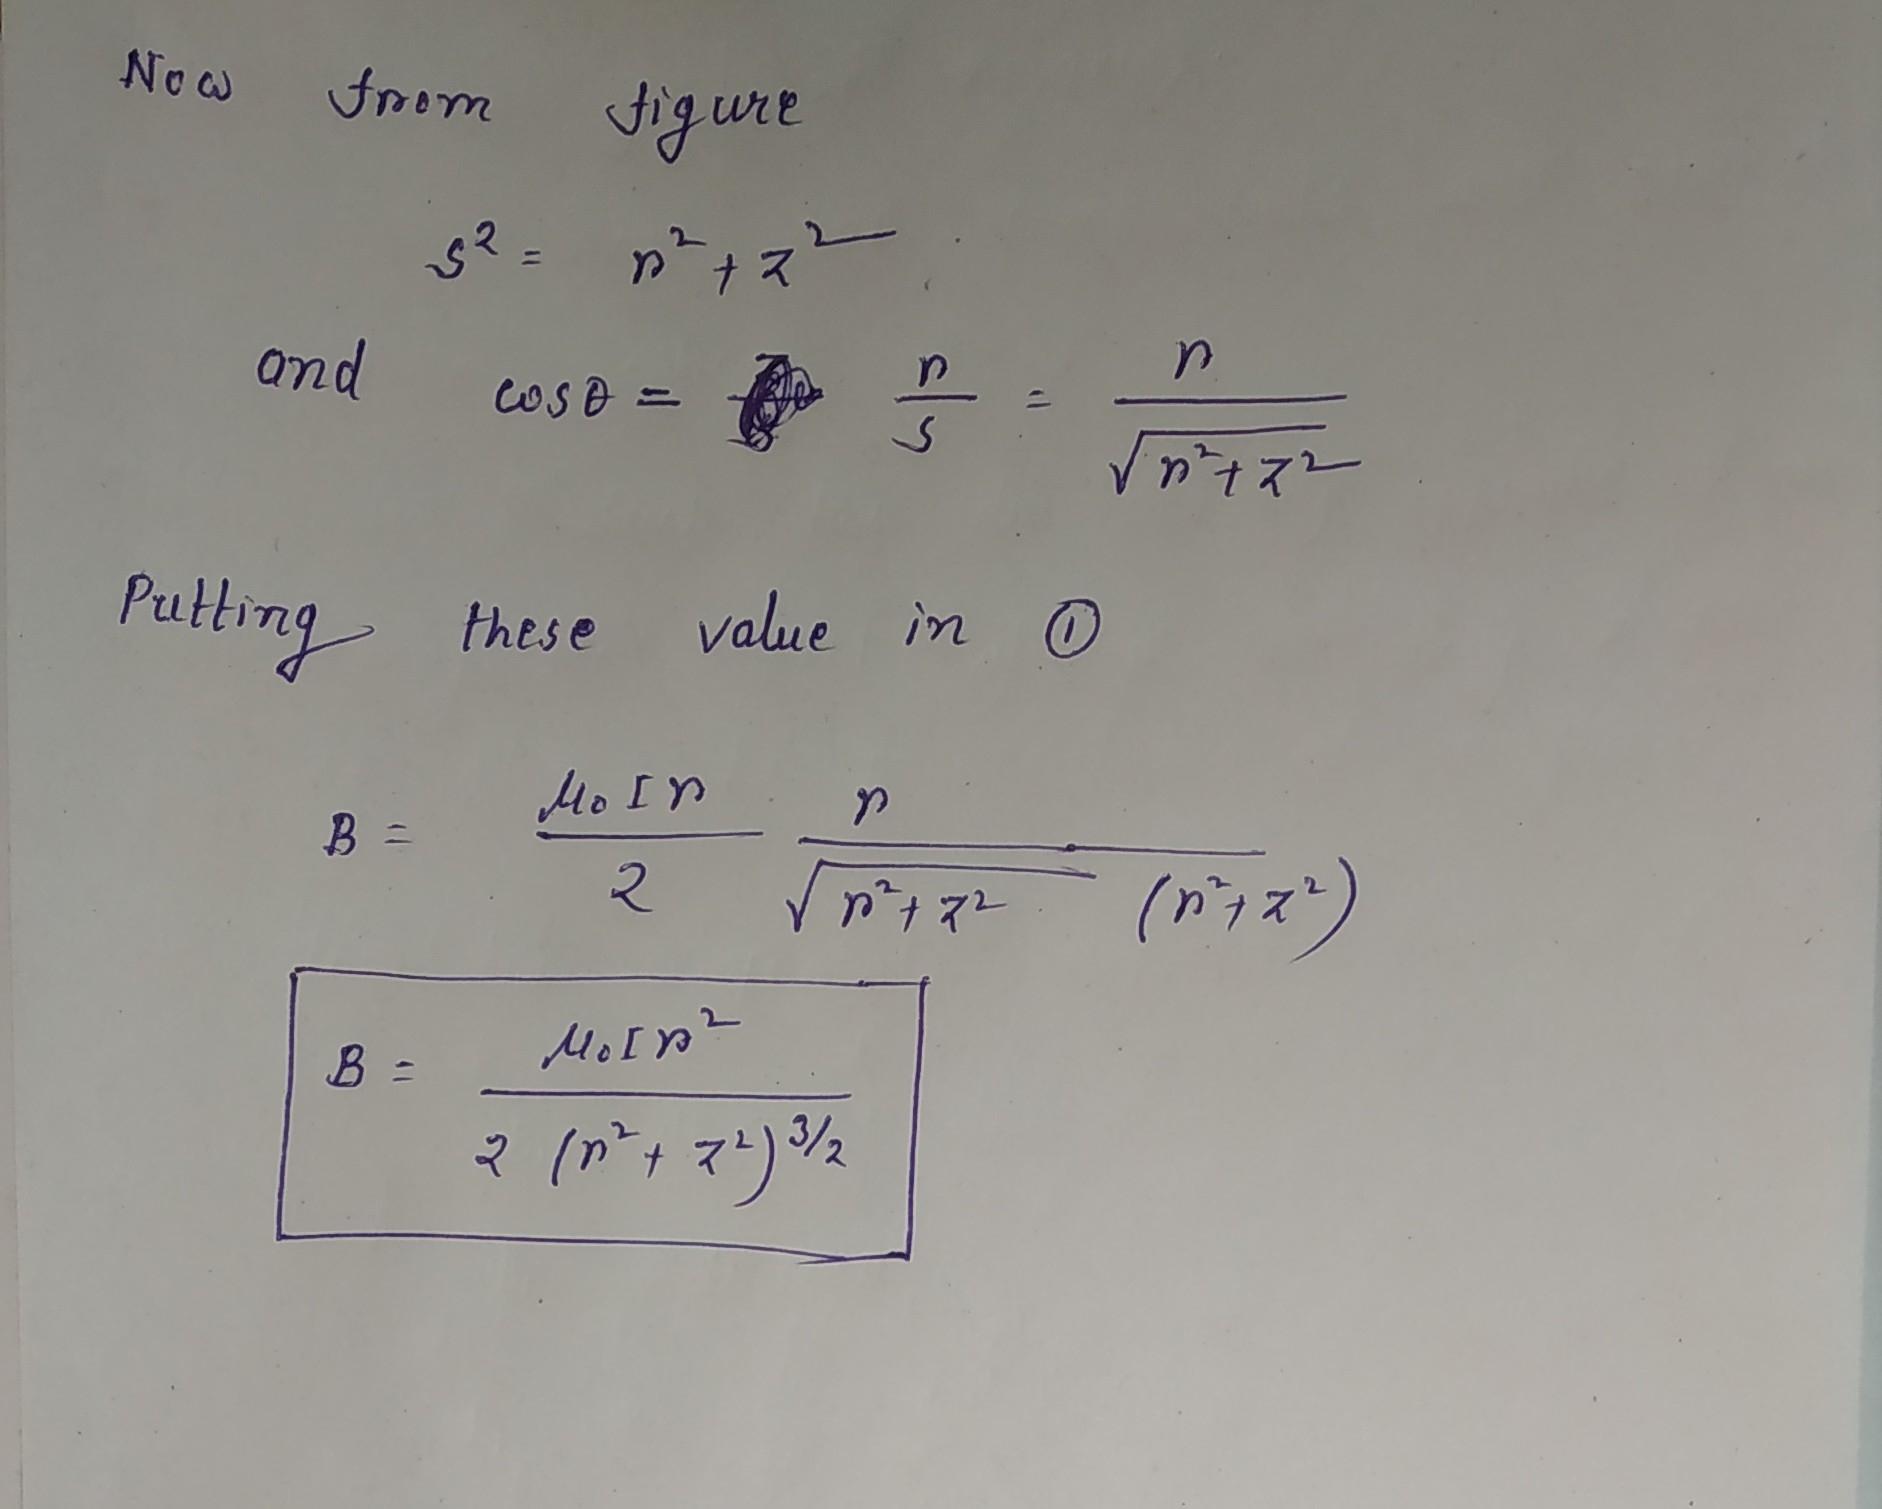 Now from figure
s² = r² + z²
and cosθ = r/s = r/√(r²+z²)
Putting these value in ①
B = μ₀Ir/2 r/(√(r²+z²) (r²+z²))
B = μ₀Ir²/(2 (r²+z²)^3/2)